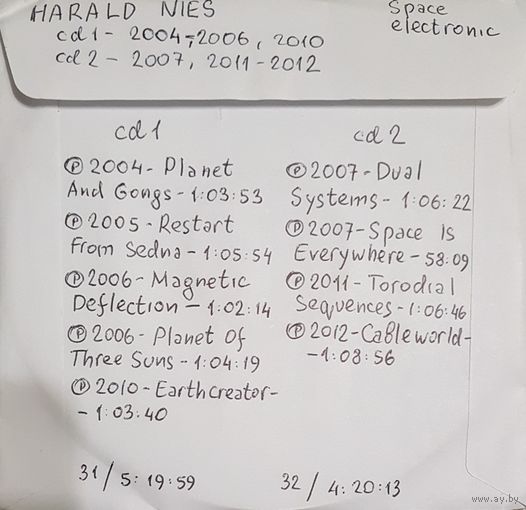 HARALD NIES
Space
electronic
cd1 - 2004-2006, 2010
cd2 - 2007, 2011-2012
cd1
℗ 2004 - Planet
And Gongs - 1:03:53
℗ 2005 - Restart
From Sedna - 1:05:54
℗ 2006 - Magnetic
Deflection - 1:02:14
℗ 2006 - Planet Of
Three Suns - 1:04:19
℗ 2010 - Earthcreator -
- 1:03:40
31/5:19:59
cd2
℗ 2007 - Dual
Systems - 1:06:22
℗ 2007 - Space Is
Everywhere - 58:09
℗ 2011 - Torodial
Sequences - 1:06:46
℗ 2012 - Cableworld -
- 1:08:56
32/4:20:13
www.ay.by